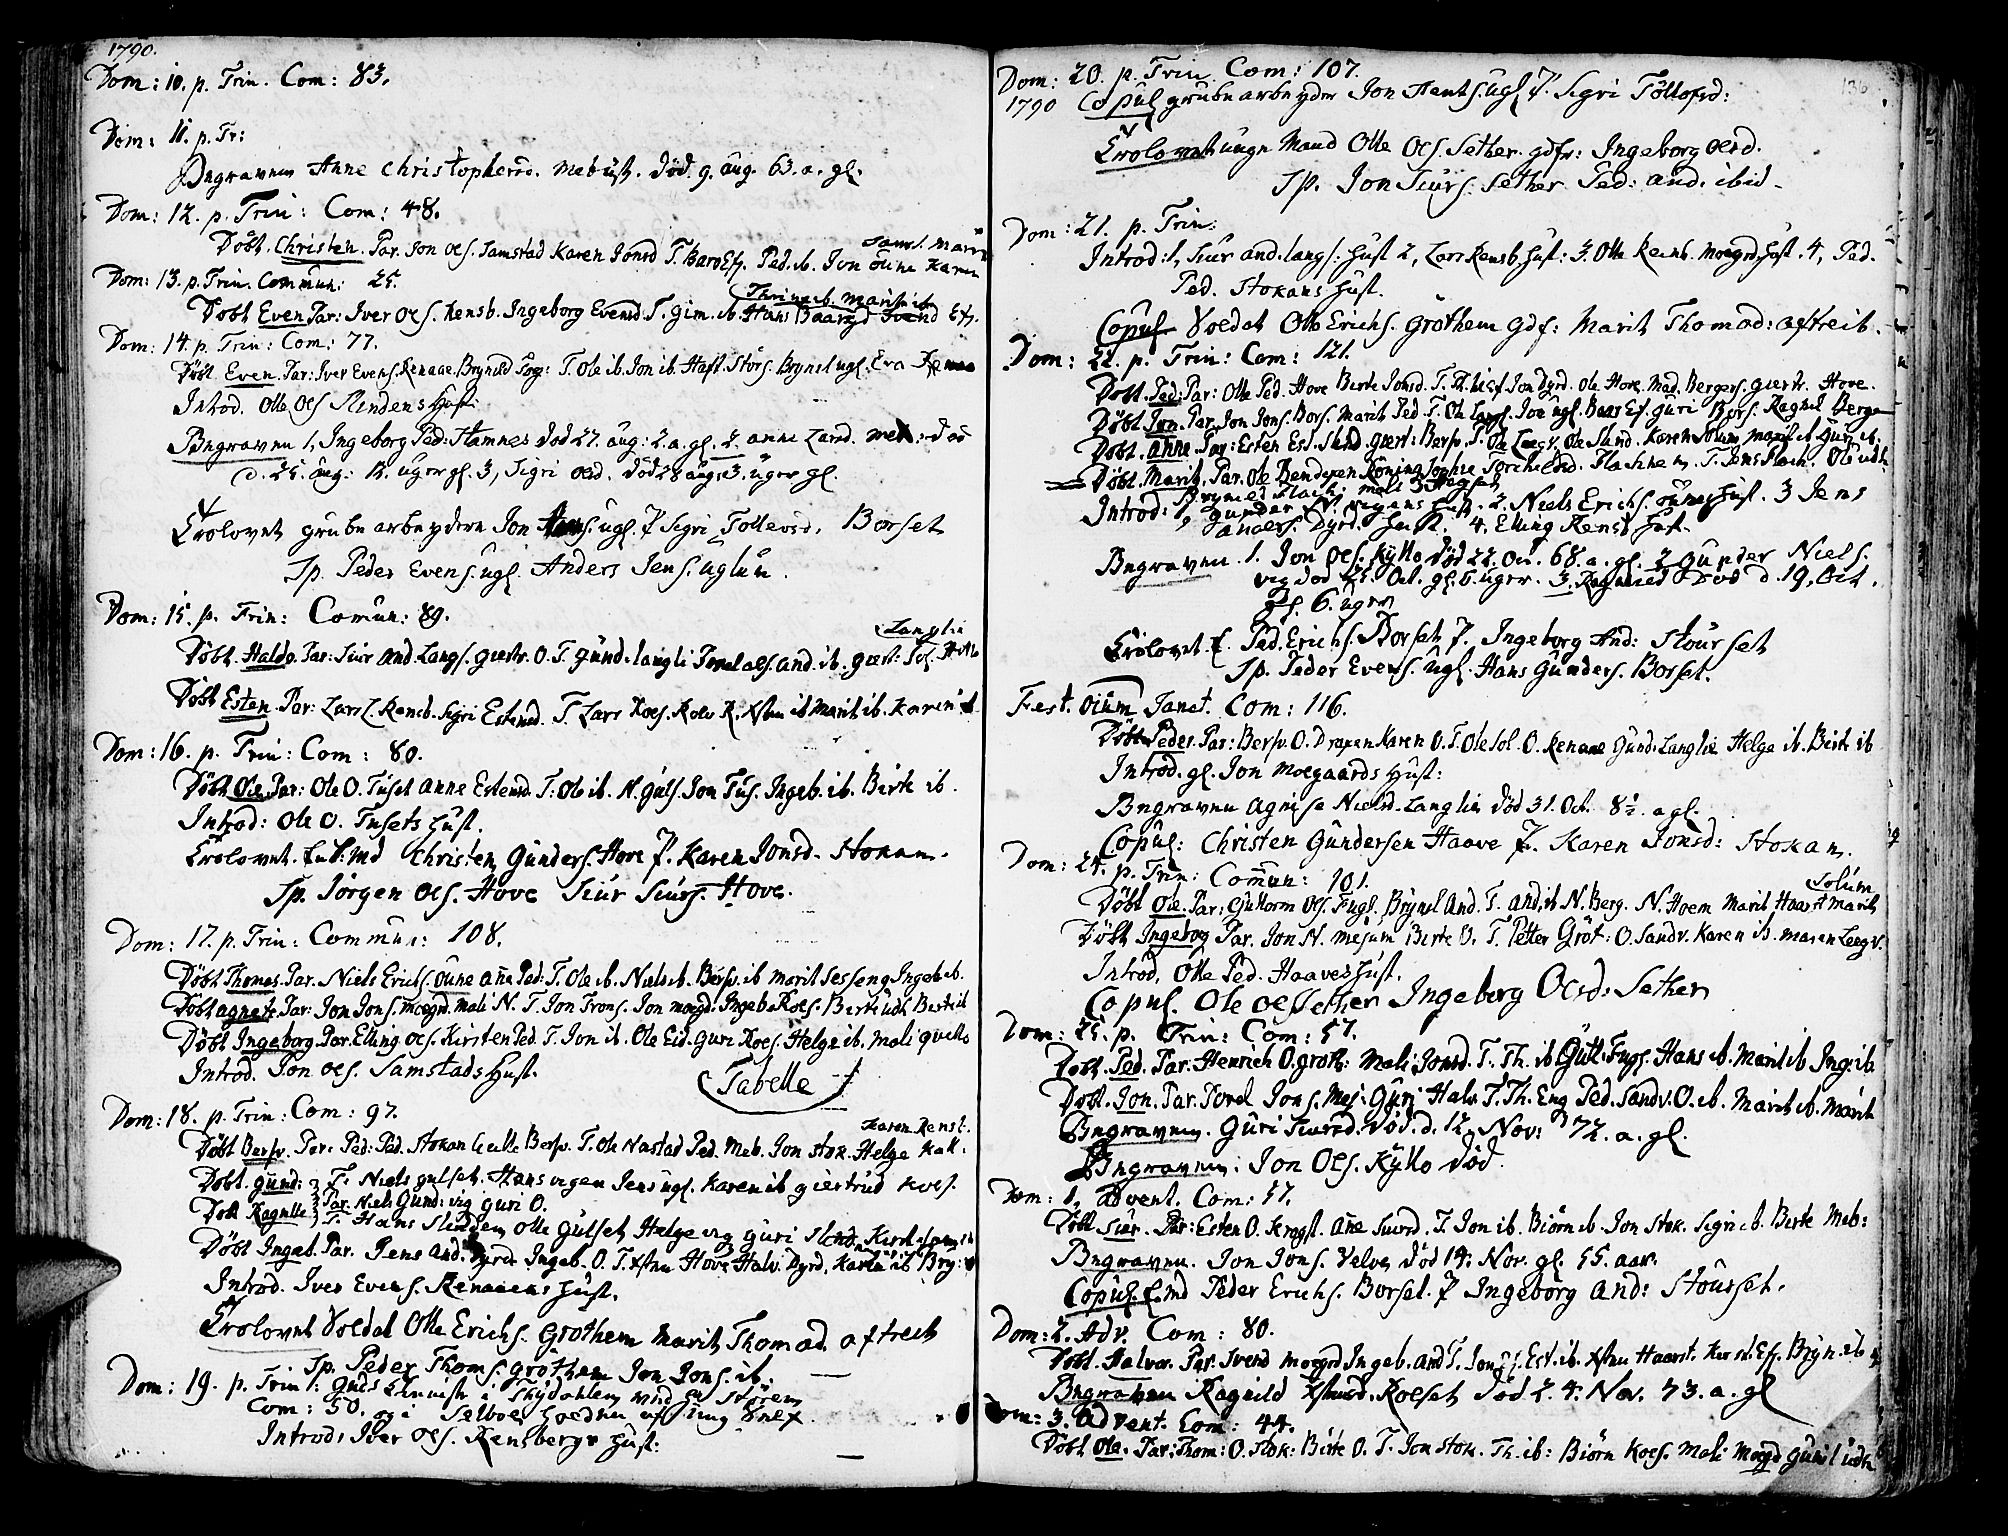 1790.
Dom: 10. p. Trin. Com: 83.
Dom: 11. p. Tr:
Bngravnen Anne Christophersd. Mebust. död 9. aug. 63. a. gl.
Dom: 12. p. Trin: Com: 48.
Samst. Marit
Döbt. Christen. Par. Jon Oels. Samstad Karen Jonsd T. Baro Ef. Ped. ib. Jon öune Karen
Dom: 13. p. Trin. Commun: 25.
Thrine ib. Marit ib
Döbt Even Par: Iver Oels. Rensb. Ingeborg Evensd. T. Gim. ib. Hans Ef.
Dom: 14. p. Trin: Com: 77.
Döbt Even. Par: Iver Evens. Renaae. Brynild T. Ole ib. Jon ib. Haft. Störs. Brynel ugl. Eva
Introd. Olle Oels Slindens Hust:
Bngravnn 1, Ingeborg Ped: Hamnes död 27. aug: 2. a. gl. 2. anne Larsd. död
d. 25. aug: 12. uger gl. 3, Sigri Oelsd. död 28 aug. 3. uger gl.
Trolovet grube arbeydern Jon ugl. & Sigri Tollevsd. Borset
Sp. Peder Evens. ugl. Anders Jens. uglun.
Dom: 15. p. Trin: Comun: 89.
Langlie
Döbt Haldo. Par: Siur And. Langs. Giertr. O. T. Gund. langli Torel Oels. and. ib. Giert. Sol.
Döbt Esten. Par: Lars L. Rensb. Sigri Estensd. T. Lars Roes. Rolv R. Xsten ib Marit ib. Karen ib
Dom: 16. p. Trin: Com: 80.
Döbt Ole. Par: Ole O. Tuset Anne Estensd. T: Ole ib. N. Guls. Jon Tus. Ingeb. ib. Birte ib.
Introd: Ole O. Tusets Hust.
Trolovet. Enk: Md Christen Gunders. Hove & Karen Jonsd. Stokan.
Sp. Jörgen Oels. Hove Siur Siurs. Hove.
Dom: 17. p. Trin: Commun: 108.
Döbt Thomas. Par. Niels Erichs. öune Añe Ped: T. Ole ib. Niels ib. Bersv. ib Marit Sesseng Ingeb ib.
Döbt Agnete. Par: Jon Jons. Moegrd. Mali N. T. Jon Trons. Jon Moegd. Ingeb. Roes. Berte Udt Berit ib
Döbt Ingeborg. Par. Elling Oels. Kirsten Ped. T. Jon ib. Ole Eid. Guri Roes. Helge ib. Mali Quello
Introd. Jon Oels. Samstads Hust.
Tabelle
Dom: 18. p. Trin: Com: 97.
Karen Rensl.
Döbt Bersv. Par. Ped: Ped. Stokan Bersv. T. Ole Nastad Ped. Meb. Jon Stok. Helge Kall.
Döbt. Gund: T. Niels Gulset. Hans Vigen Jens ugl. Karen ib Giertrud Roes.
Döbt Ragnille Par. Niels Gund: Vig Guri O.
T. Hans Slinden Olle Gulset Helge Vig Guri Slind. Kirst.
Döbt Ingeb. Par. Jens And: Dyrd. Ingeb. O. T. Xsten Hove Halv. Dyrd. Karen ib Bry:
Introd. Iver Evens. Renaaens Hust.
Trolovet Soldat Olle Erichs. Grothem Marit Thomad. aftreet
Sp. Peder Thoms. Grothem Jon Jons. ib.
Dom: 19. p. Trin: Guds i Thydahlen
Com: 50. og i Selboe
Introd: Iver Oels. Rensbergs Hust:
136
Dom: 20. p. Trin. Com: 107.
1790 Copul grube arbeyder Jon Hans. ugl & Sigri Tollofsd:
Trolovet unge Mand Olle Oels. Sether. gdfr: Ingeborg Oelsd.
Sp. Jon Siurs. Sether Ped: And. ibid.
Dom: 21. p. Trin:
Introd: 1, Siur and. langs. Hust 2, Lars Rensb Hust: 3. Olle Rensb. Moegrd. Hust. 4, Ped.
Ped. Stokans Hust.
Copul. Soldat Olle Erichs. Grothem gdf: Marit Thomad: aftreit.
Dom: 22. p. Trin: Com: 121.
Döbt. Ped: Par: Olle Ped. Hove Birte Jonsd. T. Jon Dyrd. Ole Hove. Mad. Bergers. Giertr. Hove.
Döbt Jon. Par. Jon Jons. Bors. Marit Ped T. Ole Langs. Jon Ugl. Baar Ef. Guri Bors. Ragnil Berge
Döbt. Anne. Par: Esten Est. Slind Giert: Bersv. T. Ole Leegv. Ole Slind. Karen Solum Marit ib Guri ib.
Döbt. Marit. Par. Ole Bendixen Röning Sophie Flachnem T. Jens Flach. Ole Udt
Brynild Flach. Mali
Introd: 1, Gunder Vigens Hust. 2. Niels Erichs. ounes Hust. 3 Jens
Anders. Dyrd. Hust. 4. Elling Rensb Hust.
Bngravnn. 1. Jon Oels. Kyllo död 22. Oct. 68. a. gl. 2 Gunder Niels.
Vig död 25. Oct. gl. 5. uger. 3. Ragnild död d. 19. Oct.
gl. 6. uger
Trolovet. E. Ped. Erichs. Borset & Ingeborg And: Stourset
Sp. Peder Evens. Ugl. Hans Gunders. Borset.
Fest. Oium Sanct. Com: 116.
Döbt Peder. Par: Bersv. O. Draxen Karen O. T. Ole Sol. O. Renaae Gund. Langlie Helge ib. Birte ib
Introd. gl. Jon Moegaards Hust:
Bngravnn Agnise Nielsd. Langlien död 31. Oct. 8½. a gl.
Copul: Christen Gundersen Haave & Karen Jonsd: Stokan.
Dom: 24. p. Trin: Comun: 101.
Solum
Döbt Ole. Par: Guttorm Oels. Fugl. Brynel And. T. And. ib N. Berg. N. Hoem Marit Haarst Marit
Döbt Ingeborg Par. Jon N. Mejum Birte O. T. Petter Gröt: O. Sandv. Karen ib. Maren Leegv.
Introd. Olle Ped. Haaves Hust.
Copul. Ole Oels Sether Ingeborg Oelsd: Sether
Dom: 25. p. Trin: Com: 57.
Döbt. Ped. Par: Henrich O. Groth: Mali Jonsd. T. Th. ib Gutt: Fugl. Hans ib. Marit ib Ing: ib
Döbt. Jon. Par. Torel Jons. Mej: Guri Halv. T. Th. Eng Ped. Sandv. O. ib. Marit ib. Marit
Bngravnn. Guri Siursd. död. d. 12. Nov: 72. a. gl.
Bngravnn: Jon Oels. Kyllo död.
Dom: 1. Advent. Com: 57.
Döbt Siur. Par: Esten O. Krogst. Añe Siursd. T. Jon ib. Biörn ib. Jon Stok. Sigri ib. Berte Meb:
Bngravnn. Jon Jons. Velve död 14. Nov. gl. 55. aar.
Copul. E. md Peder Erichs. Borset & Ingeborg And: Stourset.
Dom: 2. Adv. Com: 80.
Döbt. Halvor. Par. Svend Moegrd Ingeb. And T. Jon Est. ib. Xsten Haarst. Kirst. Ef. Bryn. ib
Bngravnn Ragnild Xstensd. Roeset död d. 4. Nov. 73. a. gl
Dom: 3. Advent. Com: 44.
Döbt Ole. Par: Thom: O. Stok: Birte O. T. Jon Stok. Th. ib: Biörn Roes. Mali Moegd Gunil Udt